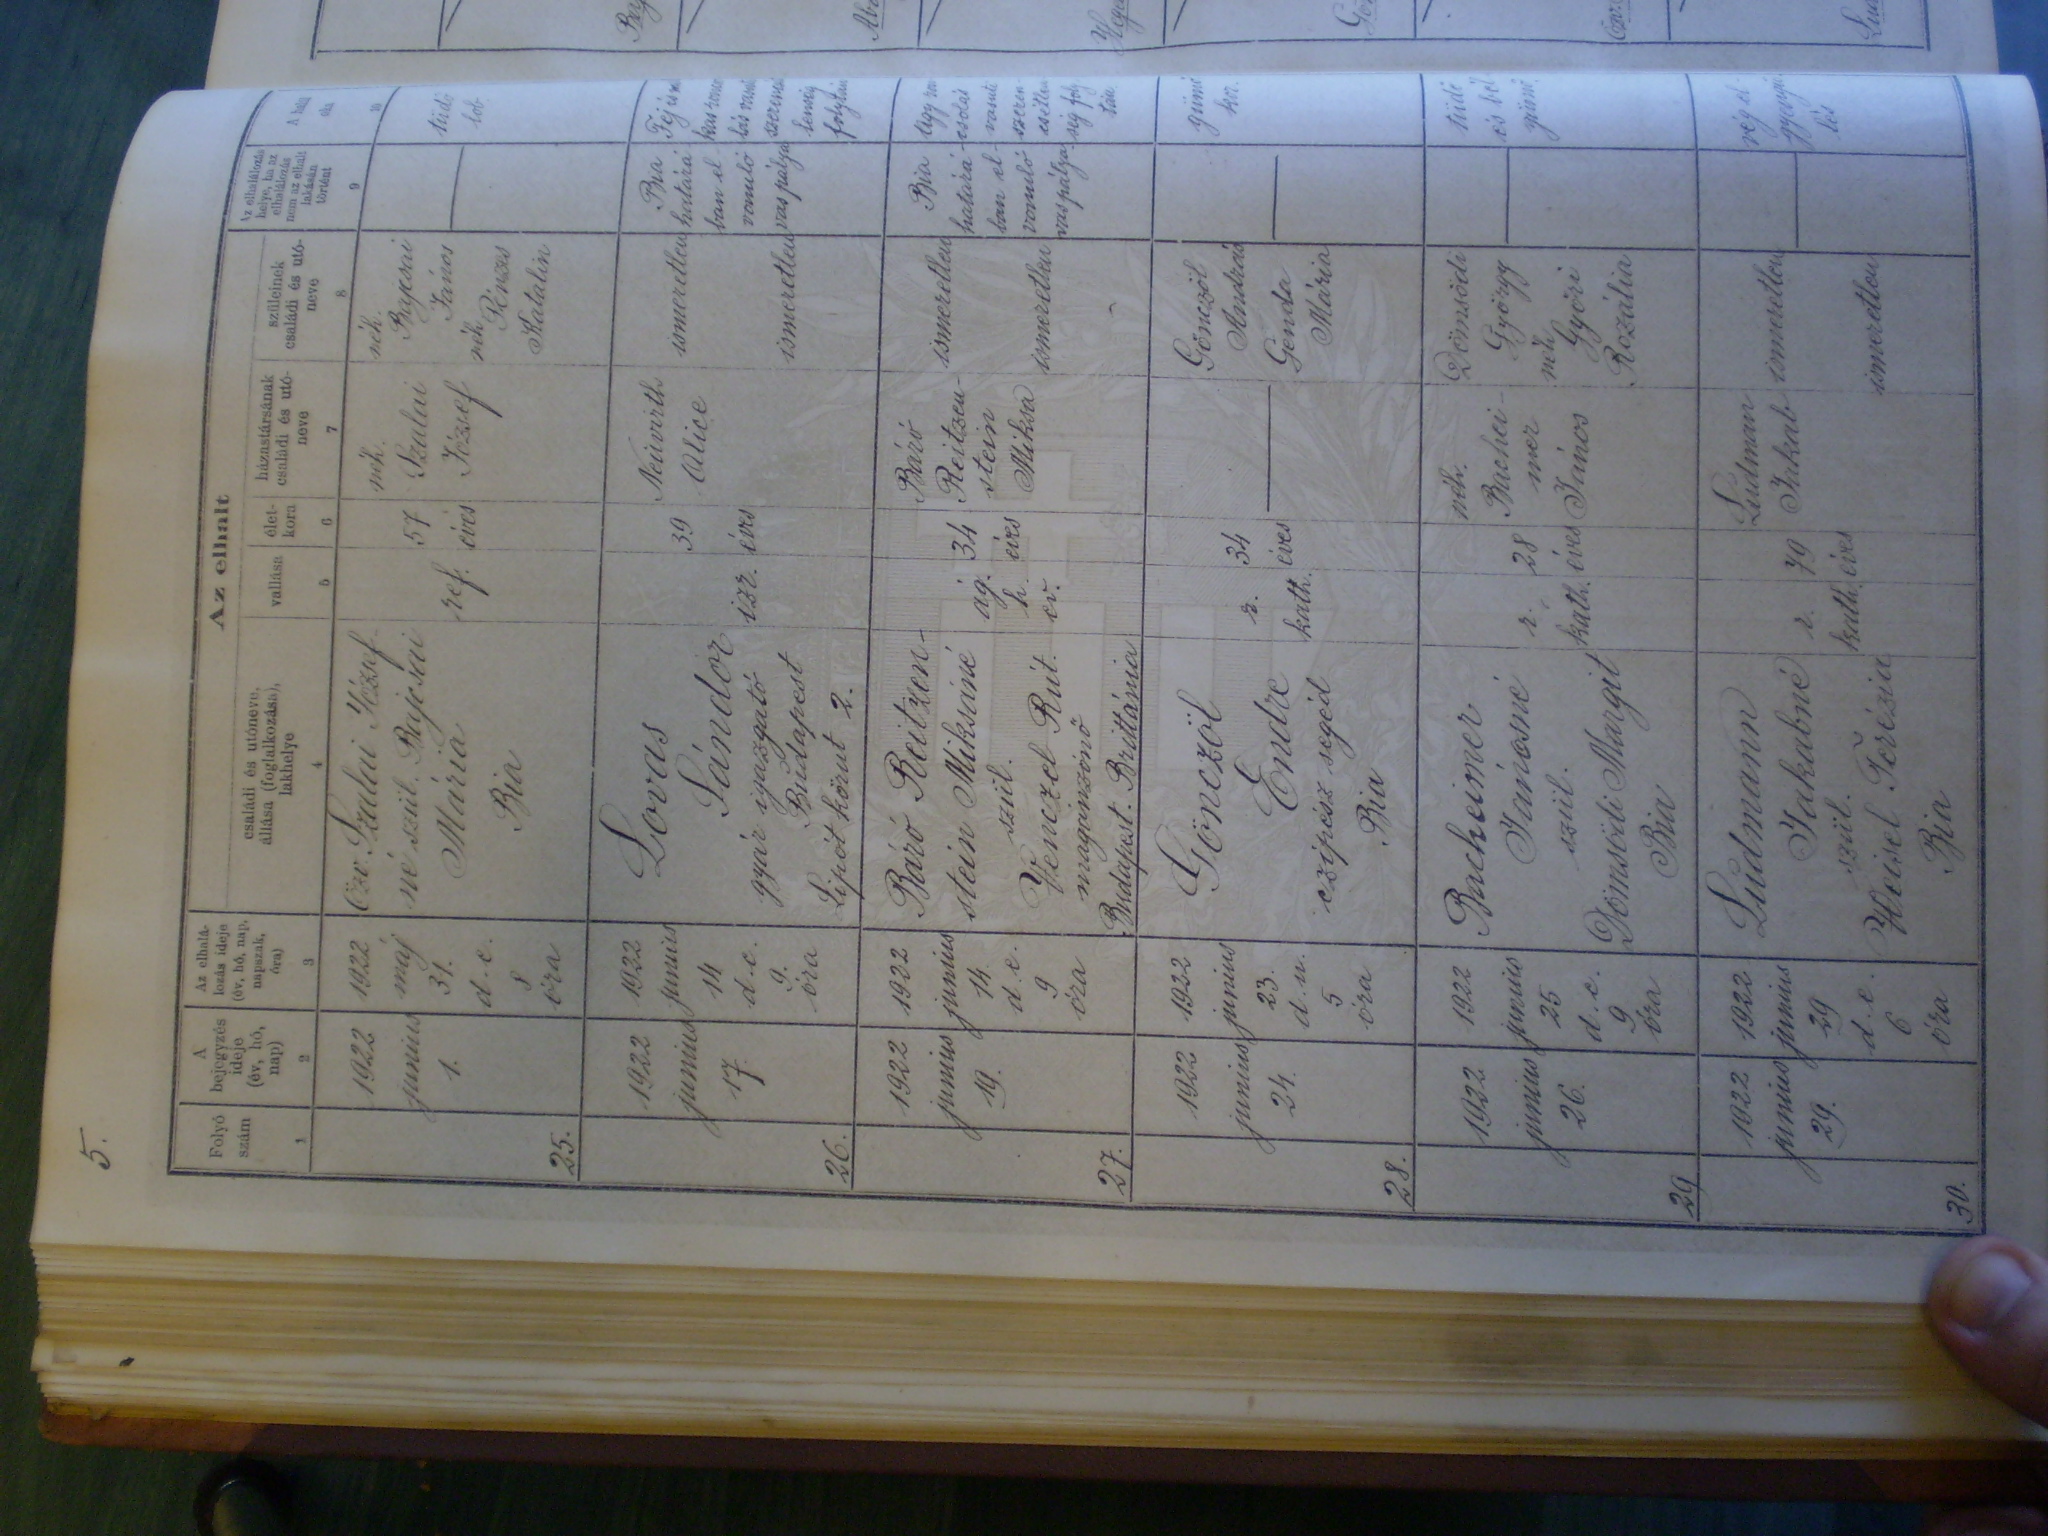 5.
Az elhalt
Folyó
szám
A
bejegyzés
ideje
(év, hó,
nap)
Az elhalá-
lozás ideje
(év, hó, nap,
napszak,
óra)
családi és utóneve,
állása (foglalkozása),
lakhelye
vallása
élet-
kora
házastársának
családi és utó-
neve
szüleinek
családi és utó-
neve
Az elhalálozás
helye, ha az
elhalálozás
nem az elhalt
lakásán
történt
A halál
oka
1
2
3
4
5
6
7
8
9
10
25.
1922
junius
1.
1922
máj
31.
d. e.
8
óra
özv. Szalai József
né szül. Bajcsai
Mária
Bia
ref.
57
éves
néh.
Szalai
József
néh.
Bajcsai
János
néh.
Pénzes
Katalin
tüdő
lob
26.
1922
junius
17.
1922
junius
14
d. e.
9.
óra
Lovas
Sándor
gyár igazgató
Budapest
Lipót körut 2.
izr.
39
éves
Neuvirth
Alice
ismeretlen
ismeretlen
Bia
határá-
ban el-
vonuló
vaspálya
27.
1922
junius
19.
1922
junius
14.
d. e.
9
óra
Báró Reitzen-
stein Miksáné
szül.
Venczel Rut.
magánzónő
Budapest. Brittánia
ág.
h.
ev.
34
éves
Báró
Reitzen-
stein
Miksa
ismeretlen
ismeretlen
Bia
határá-
ban el-
vonuló
vaspálya
28.
1922
junius
24.
1922
junius
23
d. u.
5
óra
Gönczöl
Endre
czipész segéd
Bia
r.
kath.
34
éves
Gönczöl
András
Genda
Mária
gümő
kór.
29
1922
junius
26.
1922
junius
25
d. e.
9
óra
Bacheimer
Jánosné
szül.
Dömsödi Margit
Bia
r.
kath.
28
éves
néh.
Bachei-
mer
János
Dömsödi
György
néh
Győri
Rozália
30.
1922
junius
29.
1922
junius
29
d. e.
6
óra
Ludmann
Jakabné
szül.
Heisel Terézia
Bia
r.
kath.
79
éves
Ludman
Jakab
ismeretlen
ismeretlen
vég el-
gyengü-
lés